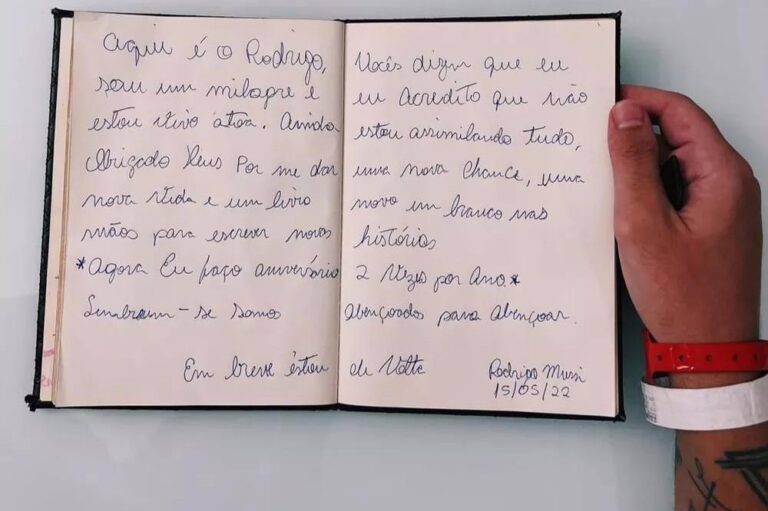 Aqui é o Rodrigo, Vocês dizem que eu
sou um milagre e eu Acredito que não
estou vivo atoa. Ainda estou assimilando tudo,
Obrigado Deus Por me dar uma nova chance, uma
nova vida e um livro novo em branco nas
mãos para escrever novas histórias
*Agora Eu faço aniversário 2 Vezes por Ano.*
Lembrem-se somos Abençoados para Abençoar.
Em breve éstou de Volta
Rodrigo Mussi
15/05/22